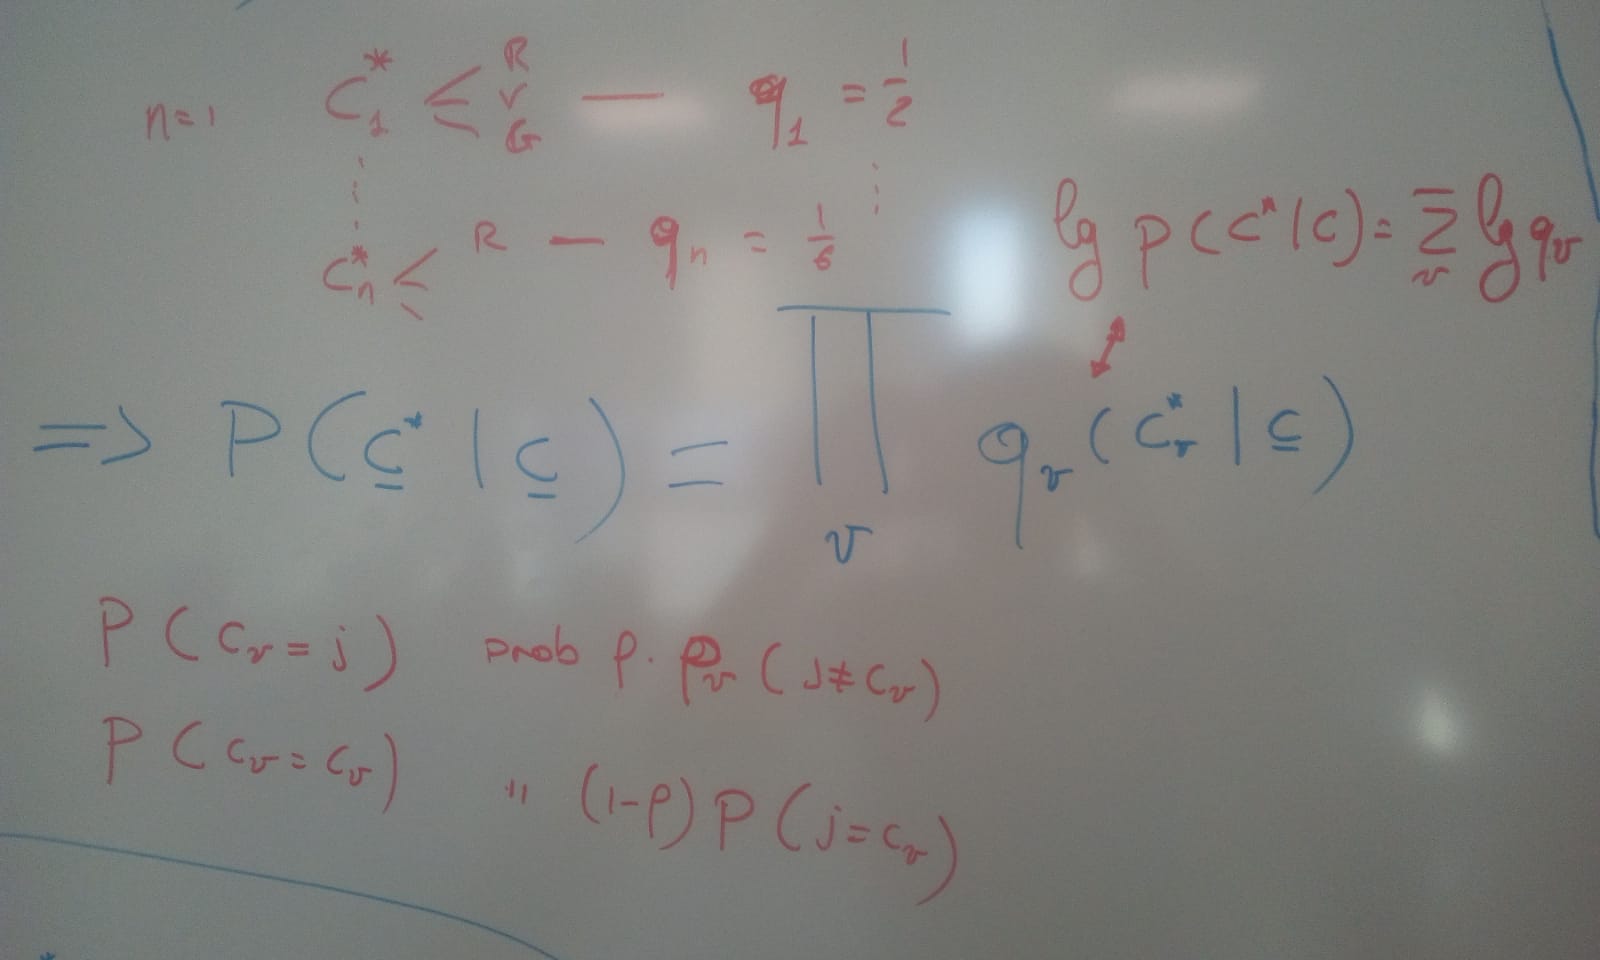 n=1 C*₁ < R V G — q₁ = 1/2
⋮ ⋮
C*ₙ < R — qₙ = 1/6
lg P(C*|C) = Σᵥ lg qᵥ
=> P(C̲*|C̲) = ∏ᵥ qᵥ(C*ᵥ|C̲)
P(Cᵥ=j) prob ρ. pᵥ(j≠Cᵥ)
P(Cᵥ=Cᵥ) " (1-ρ)P(j=Cᵥ)